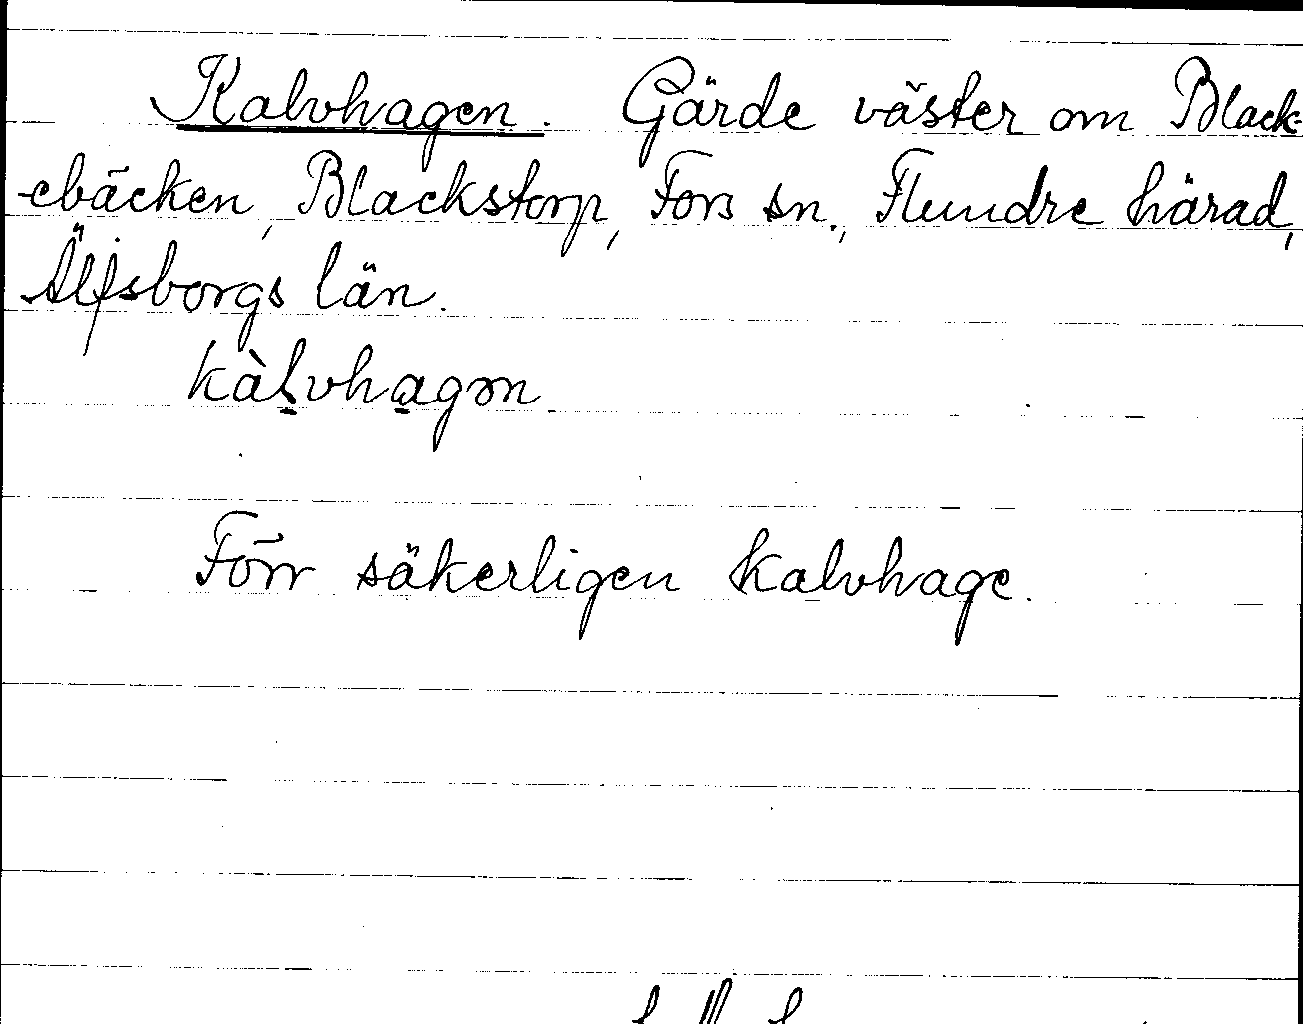 Kalvhagen. Gärde väster om Black-
ebäcken, Blackstorp, Fors sn., Flundre härad,
Älfsborgs län.
kàḷvha̱gən
Förr säkerligen kalvhage.